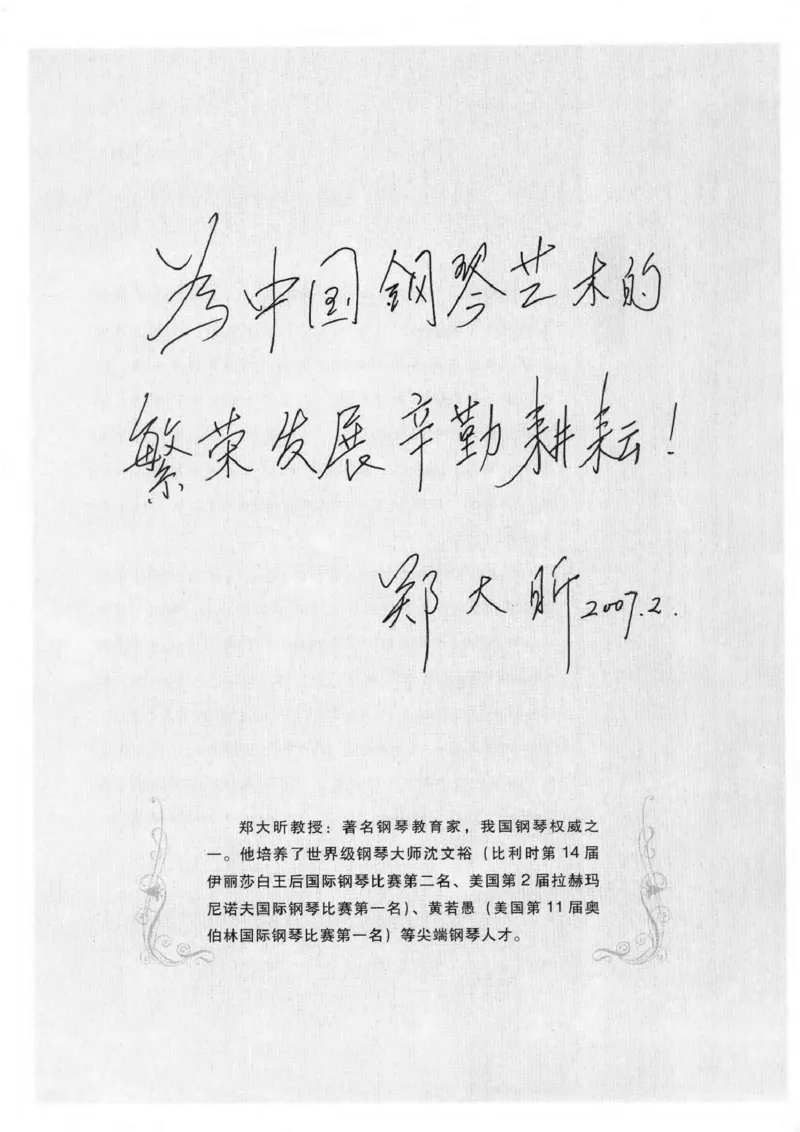 為中国鋼琴艺术的
繁荣发展辛勤耕耘！
郑大昕 2007.2.
郑大昕教授：著名钢琴教育家，我国钢琴权威之
一。他培养了世界级钢琴大师沈文裕（比利时第14届
伊丽莎白王后国际钢琴比赛第二名、美国第2届拉赫玛
尼诺夫国际钢琴比赛第一名）、黄若愚（美国第11届奥
伯林国际钢琴比赛第一名）等尖端钢琴人才。